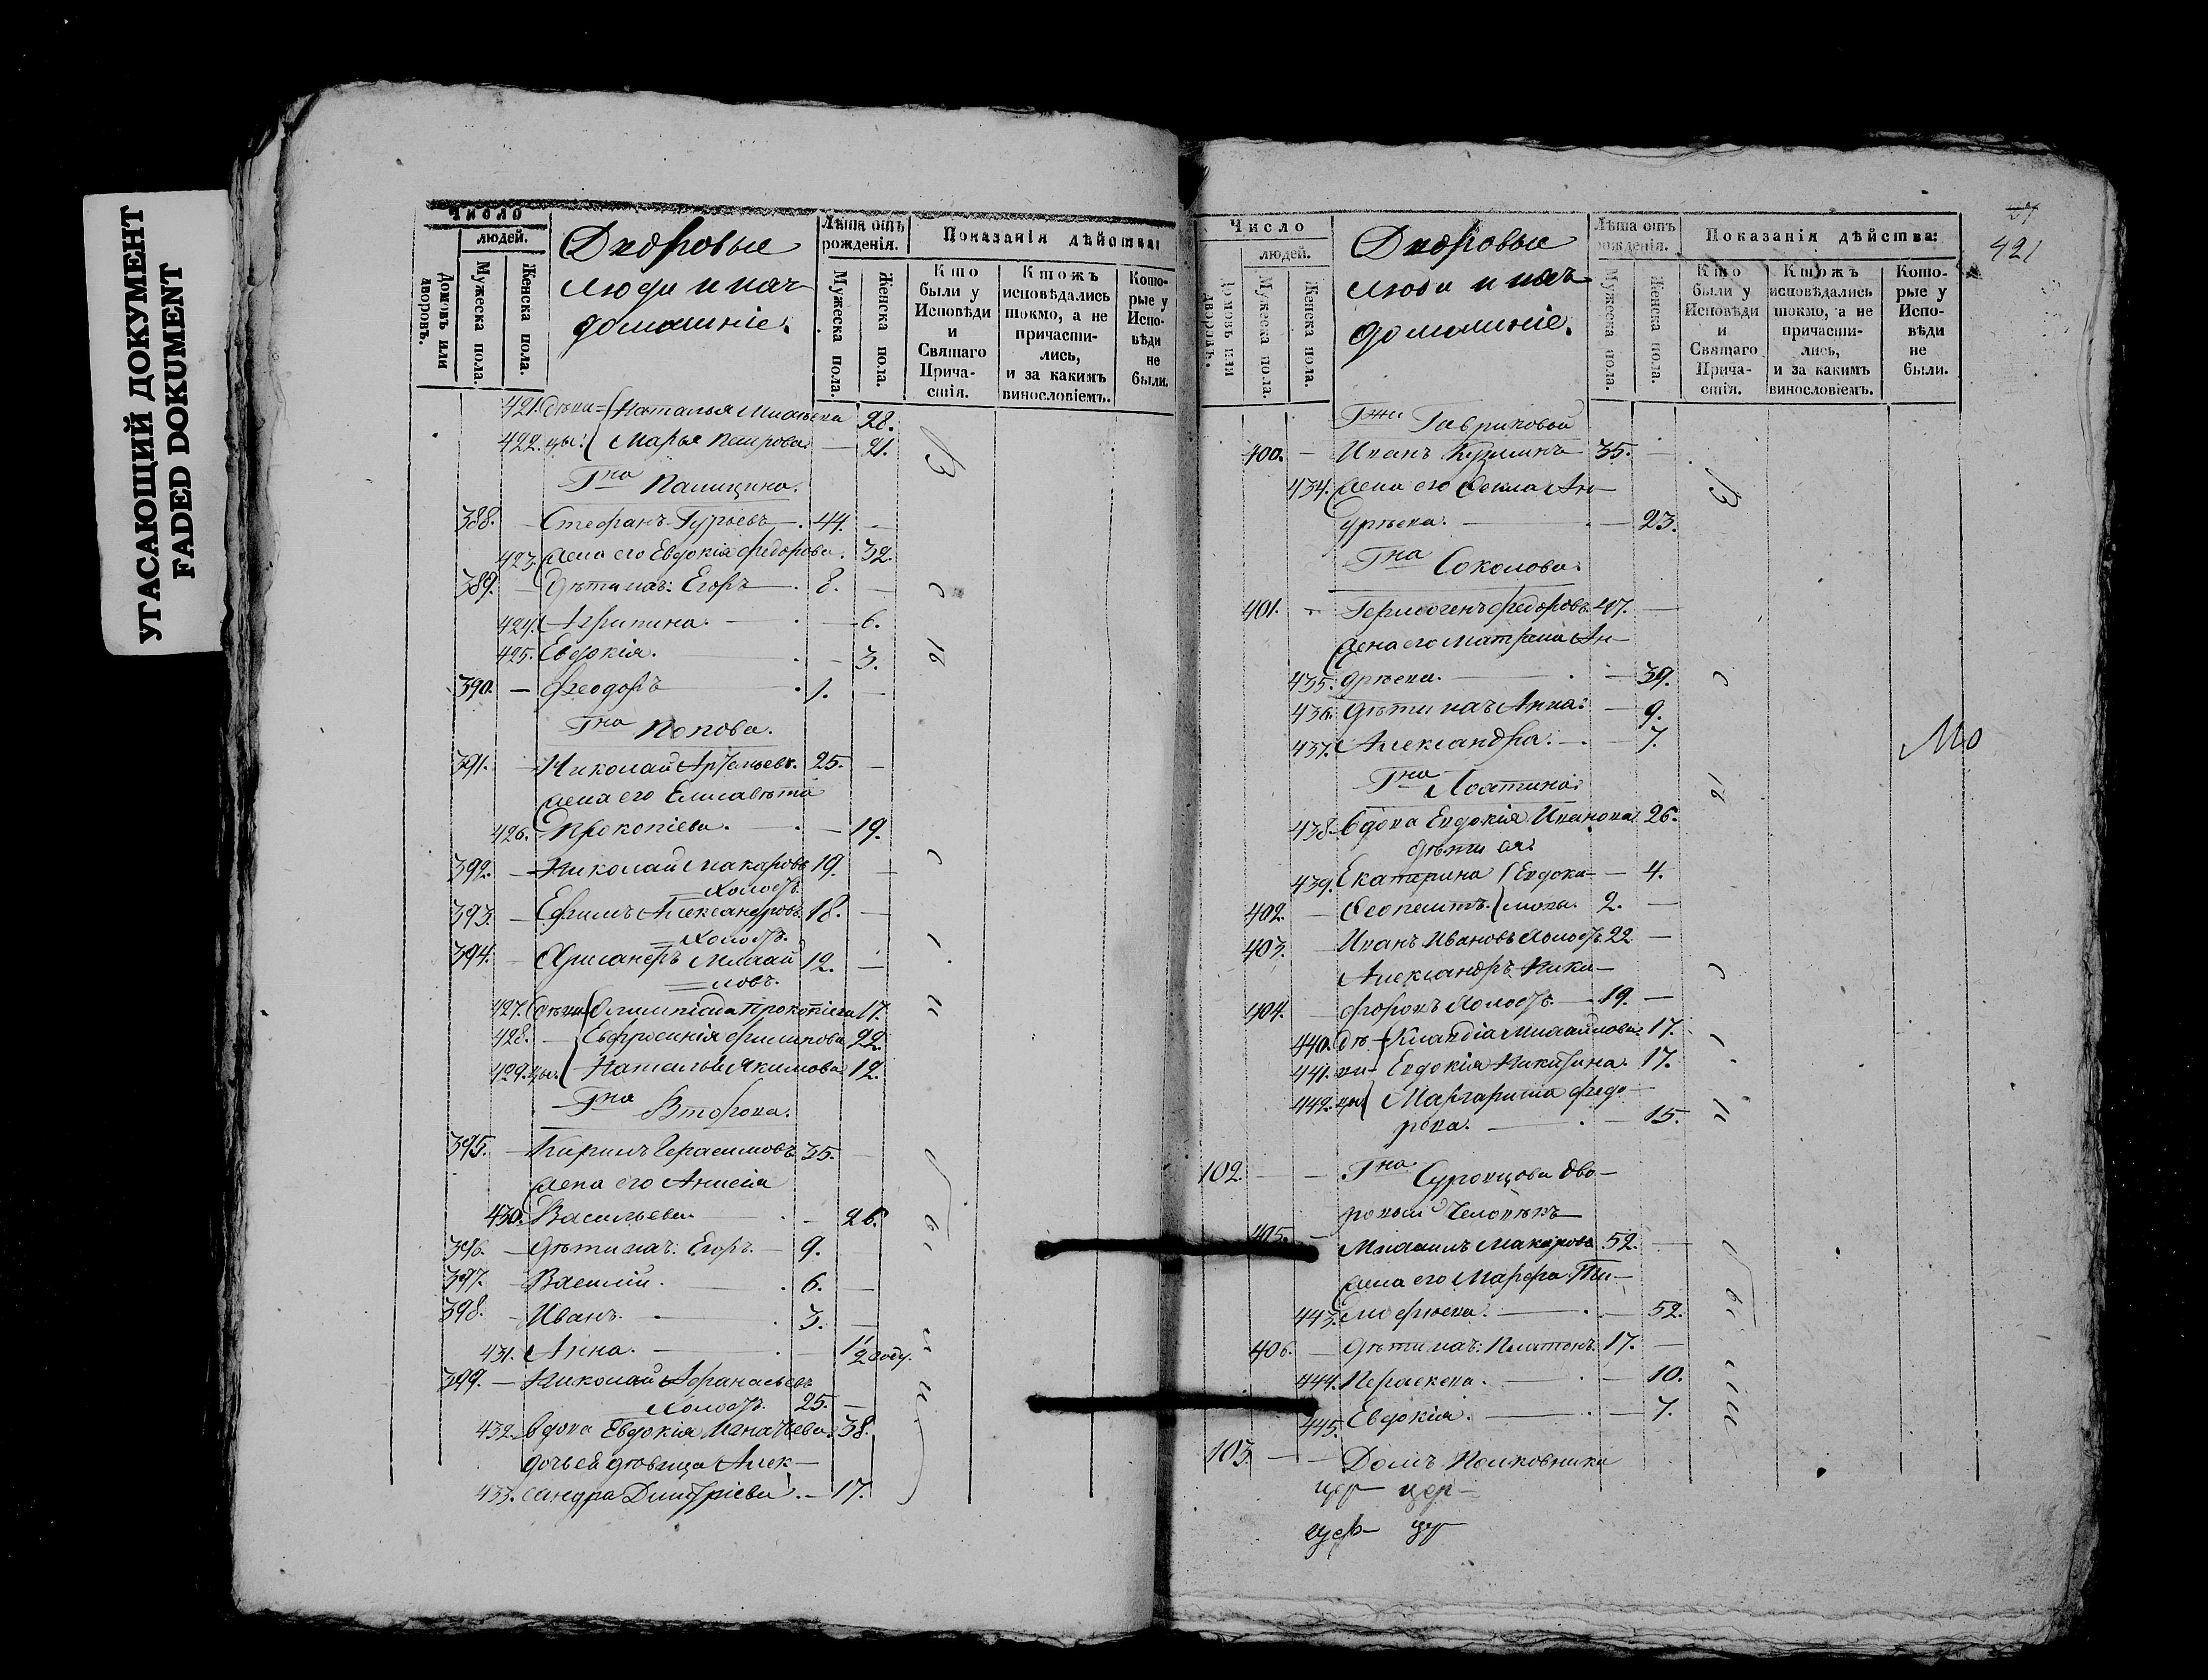 УГАСАЮЩИЙ ДОКУМЕНТ
FADED DOKUMENT
Число
людей.
Домовъ или дворовъ.
Мужеска пола.
Женска пола.
Дворовые
люди и ихъ
домашніе.
Лѣта отъ рожденія.
Мужеска пола.
Женска пола.
Показанія дѣйства:
Кто были у Исповѣди и Святаго Причастія.
Ктожъ исповѣдались токмо, а не причастились, и за какимъ винословіемъ.
Которые у Исповѣди не были.
421. дѣви= Наталья 28.
422. цы: Марья Петрова — 21.
Гна Палицина.
388. — Стефанъ Гурьевъ 44. —
423. жена его Евдокія Федорова. 32.
389. — Дѣти ихъ: Егоръ — 8. —
424. Агрипина. — 6.
425. Евдокія. — 3.
390. — Феодоръ 1. —
Гна Попова.
391. — Николай 25. —
жена его Елисавета
426. Прокопіева. — 19.
392. — Николай Макаровъ 19. —
холостъ.
393. — Ефимъ Александровъ 18. —
холостъ.
394. — Михай 12. —
ловъ.
427. Дѣви Олимпіада Прокопіева 17.
428. — Евфросинія Филипова 22.
429. цы. Наталья Якимова 12.
Гна Второва.
395. — Кирилъ Герасимовъ 35. —
жена его Анисія
430. Васильева — 26.
396. — Дѣти ихъ: Егоръ — 9.
397. — Василій. 6. —
398. — Иванъ. 3. —
431. Анна. — 1/2 году.
399. — Николай Афанасьевъ
холостъ. 25. —
432. вдова Евдокія 38.
дочь ей дѣвица Алек—
433. сандра Дмитріева. — 17.
Число
людей.
Домовъ или дворовъ.
Мужеска пола.
Женска пола.
Дворовые
люди и ихъ
домашніе.
Лѣта отъ рожденія.
Мужеска пола.
Женска пола.
Показанія дѣйства:
Кто были у Исповѣди и Святаго Причастія.
Ктожъ исповѣдались токмо, а не причастились, и за какимъ винословіемъ.
Которые у Исповѣди не были.
421
Гжи Гавриковой
400. — Иванъ 35. —
434. жена его Фекла Ан—
дрѣева. — 23.
Гна Соколова.
401. — Гермогенъ Федоровъ 47. —
жена его Матрена Ан—
435. дрѣева. — 39.
436. Дѣти ихъ Анна: — 9.
437. Александра. — 7.
Мо
Гна
438. Вдова Евдокія Иванова 26.
дѣти ея:
439. Екатерина Евдоки— — 4.
402. — мова. 2. —
403. Иванъ Ивановъ холостъ 22 —
Александръ Ники—
404. форовъ холостъ. — 19. —
440. дѣ— Клавдіа Михайлова 17.
441. ви— Евдокія Никитина. 17.
442. цы Маргарита Федо—
рова. — 15.
102. — — Гна Суровцова дво—
ровый человѣкъ
405. — Михаилъ Макаровъ 52. —
жена его Марфа Ти—
443. мофѣева. — 52.
406. — Дѣти ихъ: Платонъ. 17. —
444. Параскева. — 10.
445. Евдокія. — 7.
103. — — Домъ Полковника